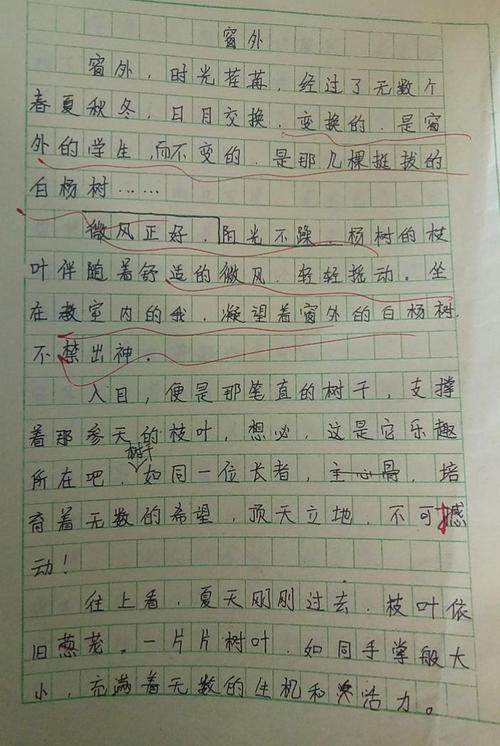 窗外
窗外，时光荏苒，经过了无数个
春夏秋冬，日月交换，变换的，是窗
外的学生，而不变的，是那几棵挺拔的
白杨树……
微风正好，阳光不躁，杨树的枝
叶伴随着舒适的微风，轻轻摇动。坐
在教室内的我，凝望着窗外的白杨树，
不禁出神。
入目，便是那笔直的树干，支撑
着那参天的枝叶，想必，这是它乐趣
所在吧，树干如同一位长者，主心骨，培
育着无数的希望，顶天立地，不可撼
动！
往上看，夏天刚刚过去，枝叶依
旧葱茏。一片片树叶，如同手掌般大
小，充满着无数的生机和活力。